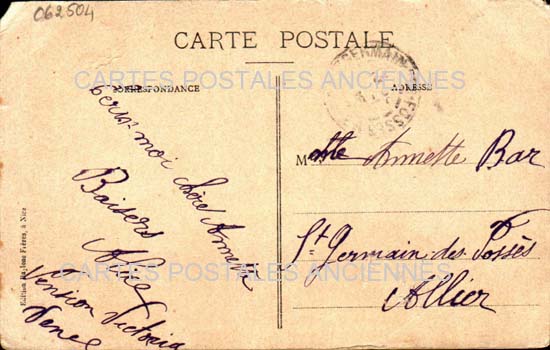 062504
CARTE POSTALE
CARTES POSTALES ANCIENNES
CORRESPONDANCE
ADRESSE
moi chère Annette
Baisers
Alice
Victoria
Vence
M Mlle Annette Bar
St Germain des Fossés
Allier
Edition Frères, à Nice
ST GERMAIN FOSSÉS
CARTES POSTALES ANCIENNES